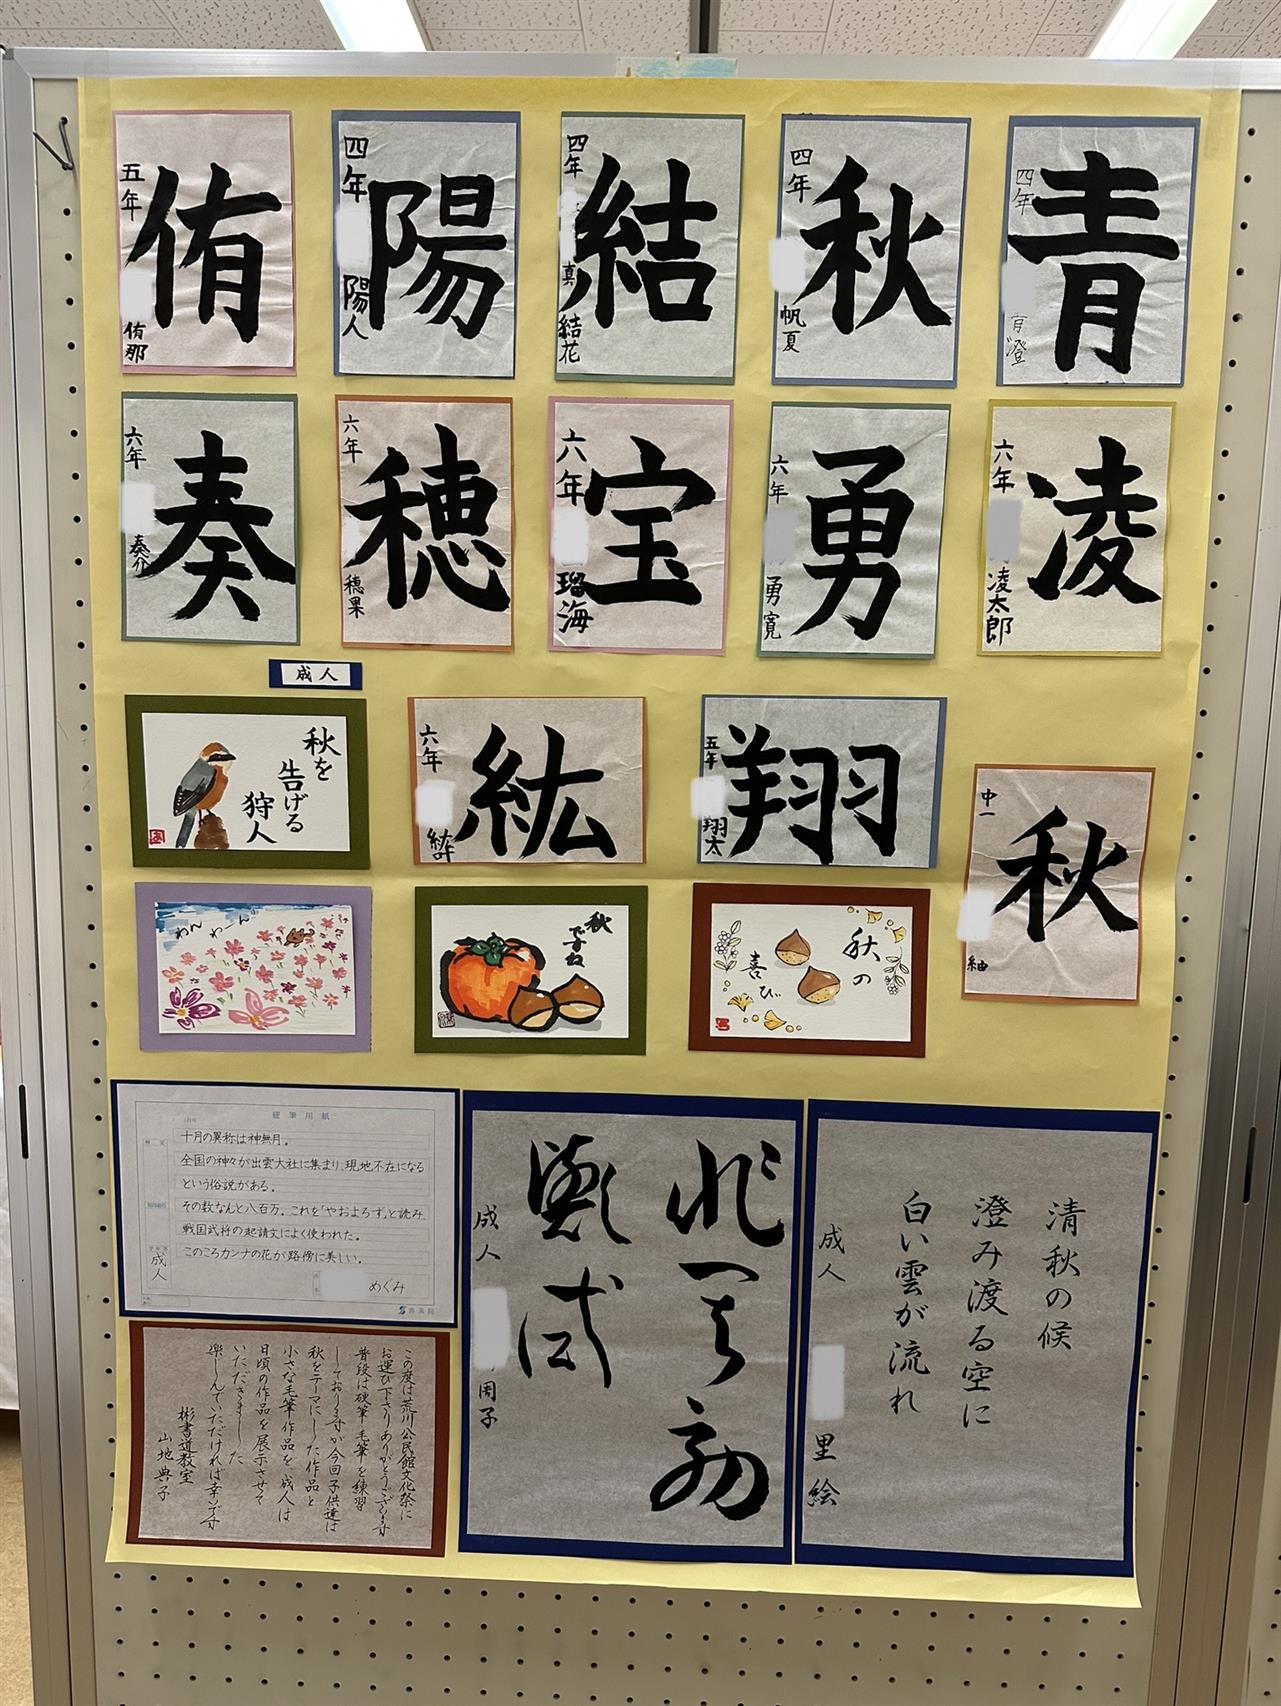 青
四年
澄
秋
四年
帆夏
結
四年
真
結花
陽
四年
陽人
侑
五年
侑那
凌
六年
凌太郎
勇
六年
勇寛
宝
六年
瑠海
穂
六年
穂果
奏
六年
奏介
成人
秋を
告げる
狩人
紘
六年
翔
五年
翔太
秋
中一
紬
わん
わーん
秋
ですね
秋の
喜び
硬筆用紙
十月の異称は神無月。
全国の神々が出雲大社に集まり、現地不在になる
という俗説がある。
その数なんと八百万。これを「やおよろず」と読み
戦国武将の起請文によく使われた。
このころカンナの花が路傍に美しい。
成人
めぐみ
成人
周子
清秋の候
澄み渡る空に
白い雲が流れ
成人
里絵
この度は荒川公民館文化祭に
お運び下さりありがとうございます
普段は硬筆・毛筆を練習
しておりますが今回子供達は
秋をテーマにした作品と
小さな毛筆作品を、成人は
日頃の作品を展示させて
いただきました
楽しんでいただければ幸いです
彬書道教室
山地典子